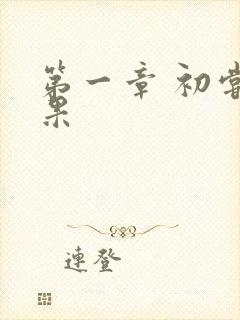 第一章 初尝
果
連登